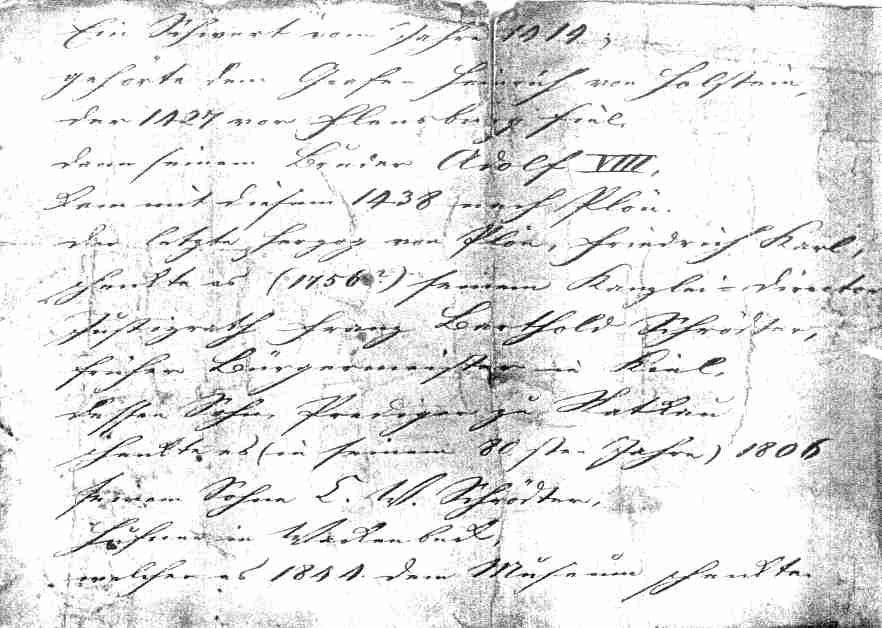 Ein Schwert vom Jahre 1414;
gehörte dem Grafen Heinrich von Holstein,
der 1427 vor Flensburg fiel.
dann seinem Bruder Adolf VIII,
kam mit diesem 1438 nach Plön.
der letzte Herzog von Plön, Friedrich Karl,
schenkte es (1756?) seinem Kanzlei-Director
Justizrath Franz Barthold Schrödter,
früher Bürgermeister in Kiel.
dessen Sohn, Prediger zu Ratkau
schenkte es (in seinem 80sten Jahre) 1806
seinem Sohne C. W. Schrödter,
Hufner in Wackenbeck,
welcher es 1844 dem Museum schenkte.